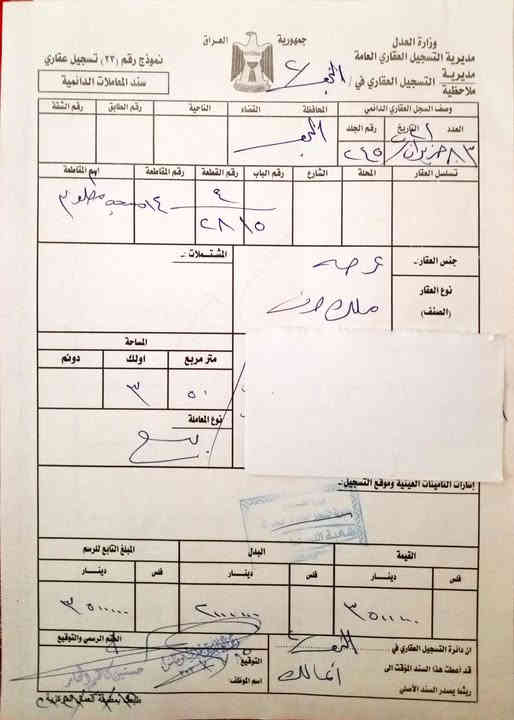 جمهورية العراق
وزارة العدل
مديرية التسجيل العقاري العامة
مديرية
ملاحظية
التسجيل العقاري في / النجف
نموذج رقم (٢٣) تسجيل عقاري
سند المعاملات الدائمية
وصف السجل العقاري الدائمي
المحافظة
القضاء
الناحية
رقم الطابق
رقم الشقة
العدد
التاريخ
رقم الجلد
٨٣
حزيران
٢٤٥
النجف
تسلسل العقار
المحلة
الشارع
رقم الباب
رقم القطعة
رقم المقاطعة
اسم المقاطعة
٤
٢٨١٥
١٤
جنس العقار:ـ
عرصه
المشتملات :ـ
نوع العقار
(الصنف)
ملك صرف
المساحة
متر مربع
اولك
دونم
٥٠
٣
نوع المعاملة
بيع
إشارات التأمينات العينية وموقع التسجيل:ـ
القيمة
البدل
المبلغ التابع للرسم
فلس
دينـــار
فلس
دينـــار
فلس
دينـــار
ان دائرة التسجيل العقاري في النجف
قد اعطت هذا السند المؤقت الى
المالك
ريثما يصدر السند الأصلي
التوقيع:
اسم الموظف:
الختم الرسمي والتوقيع